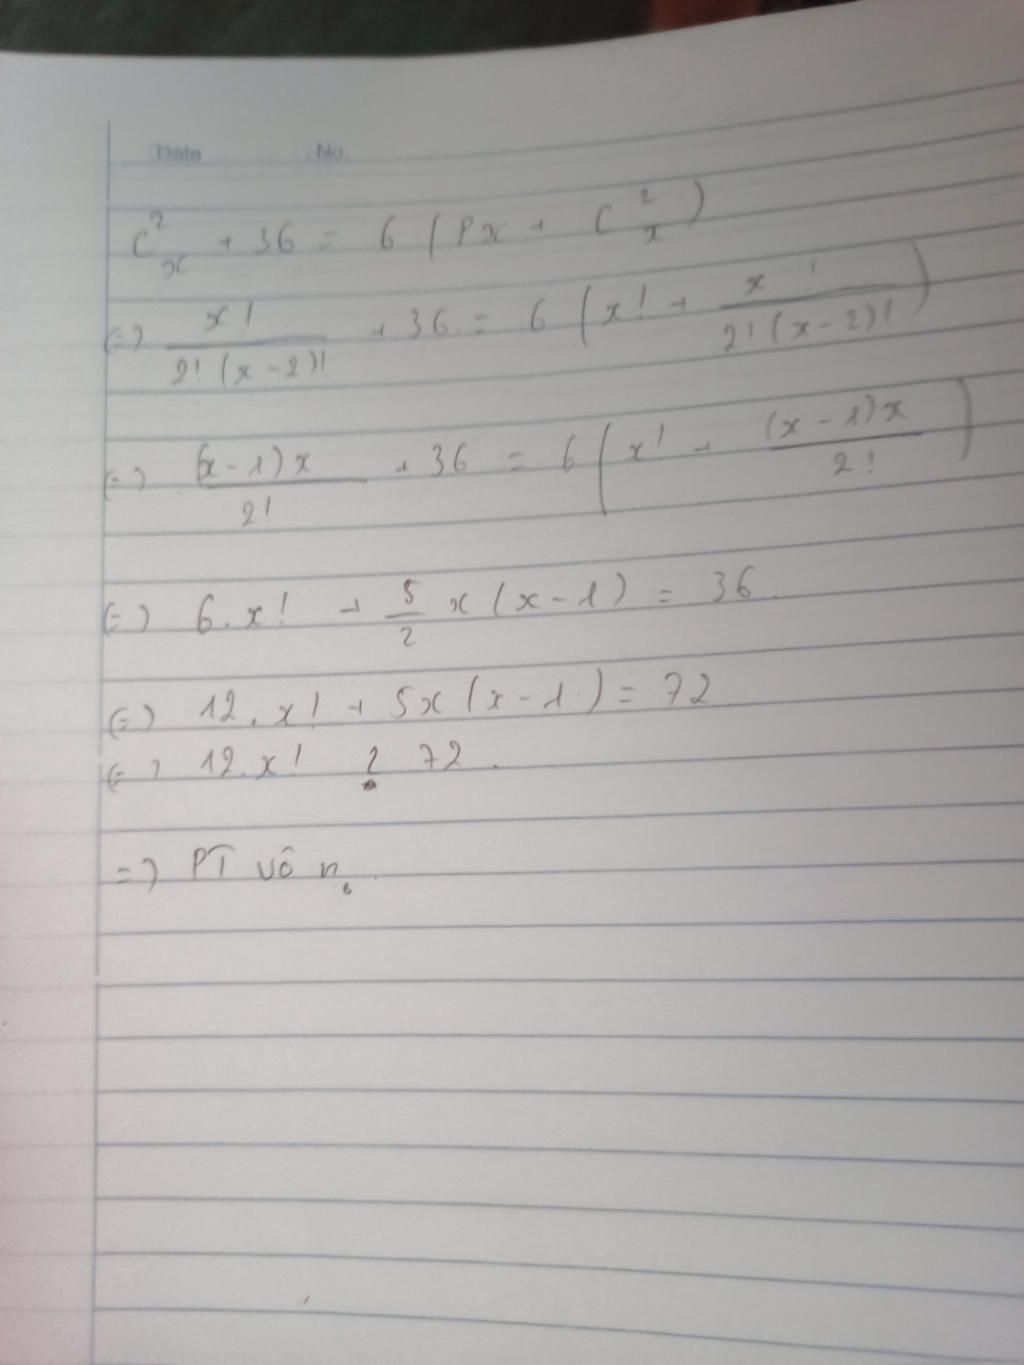 Date No.
C²ₓ + 36 = 6 (Px + C²ₓ)
(=) x! / 2!(x-2)! + 36 = 6 (x! + x! / 2!(x-2)!)
(=) (x-1)x / 2! + 36 = 6 (x! + (x-1)x / 2!)
(=) 6.x! + 5/2 x(x-1) = 36
(=) 12.x! + 5x(x-1) = 72
(=) 12.x! 72.
=) PT vô n₀.